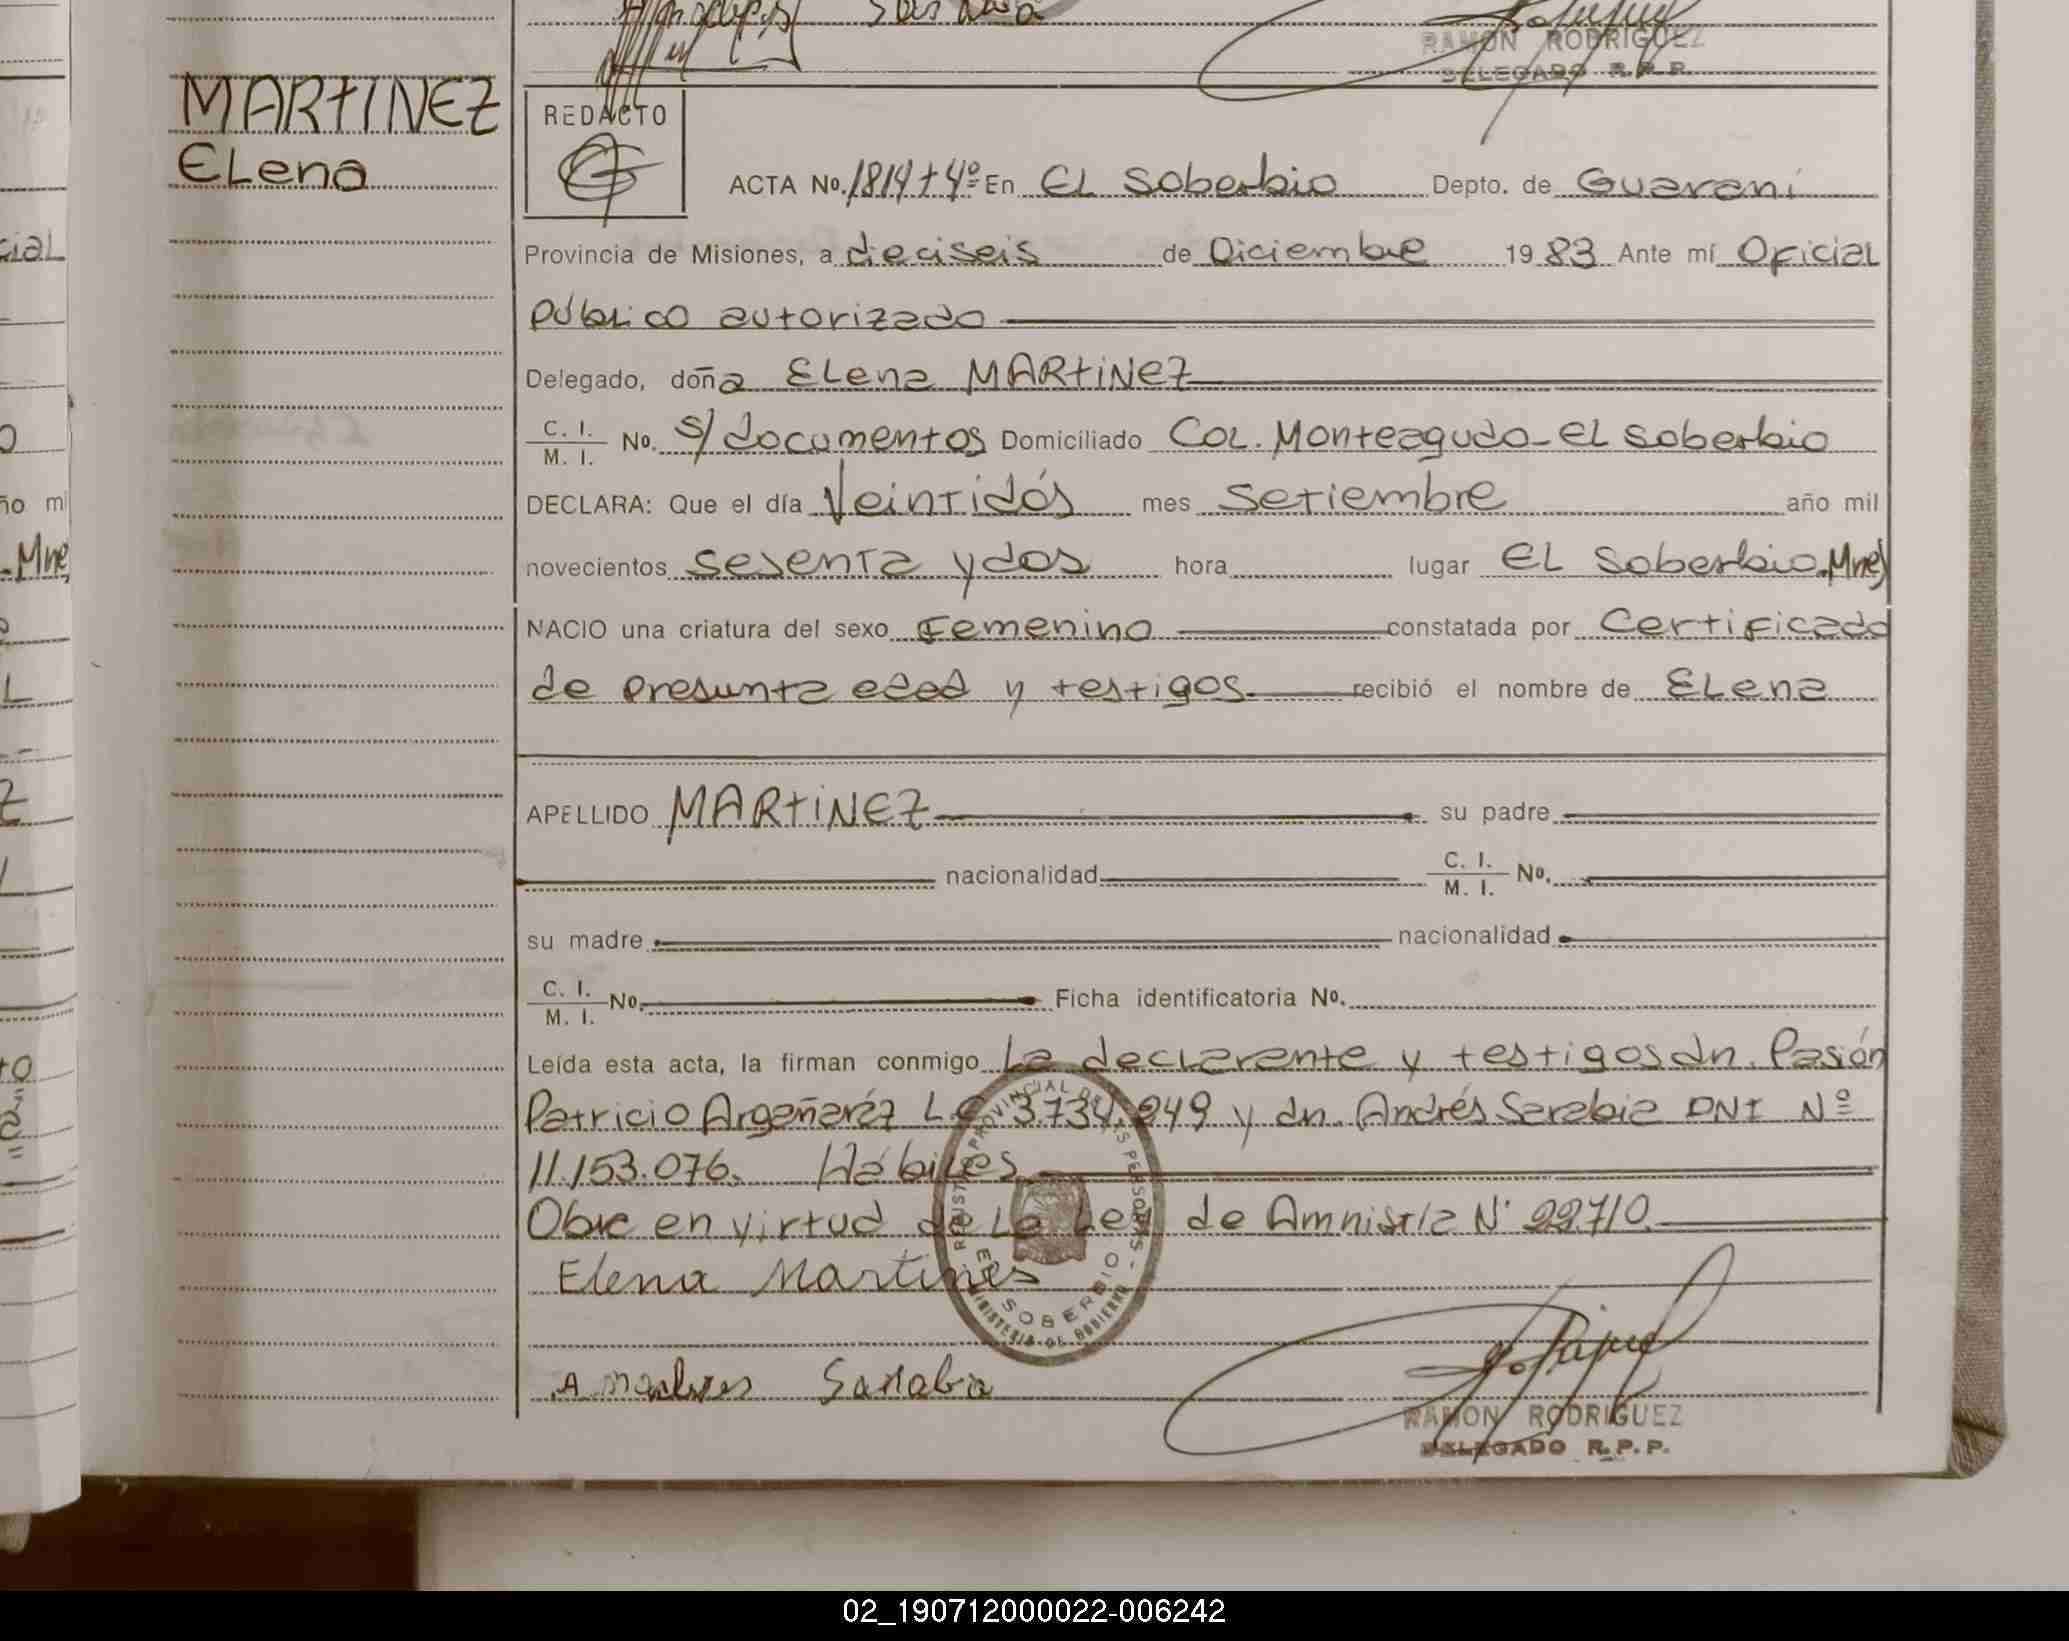 RAMON RODRIGUEZ
DELEGADO R.P.P.
MARTINEZ
ELena
REDACTO
ACTA No. 1814 T 4º En EL Soberbio Depto. de Guarani
Provincia de Misiones, a dieciseis de Diciembre 19 83 Ante mí Oficial
público autorizado
Delegado, doña ELena MARTiNeZ
C. I.
M. I. No. S/documentos Domiciliado COL. Monteagudo-eL Soberbio
DECLARA: Que el día Veintidós mes Setiembre año mil
novecientos sesenta y dos hora lugar eL Soberbio.Mnes
NACIO una criatura del sexo Femenino constatada por Certificado
de presunta edad y testigos recibió el nombre de ELena
APELLIDO MARTiNEZ su padre
nacionalidad C. I.
M. I. No.
su madre nacionalidad
C. I.
M. I. No. Ficha identificatoria No.
Leída esta acta, la firman conmigo La declarante y testigos dn. Pasión
Patricio Argañaráz L.E 3.734.949 y dn. Andrés Sarabia DNI Nº
11.153.076. Hábiles
Obre en virtud de La Ley de Amnistía Nº 22.710.
Elena Martines
Sarabia
REGISTRO PROVINCIAL DE LAS PERSONAS
EL SOBERBIO
MINISTERIO DE GOBIERNO
RAMON RODRIGUEZ
DELEGADO R.P.P.
cial
ño mi
Mnes
02_190712000022-006242